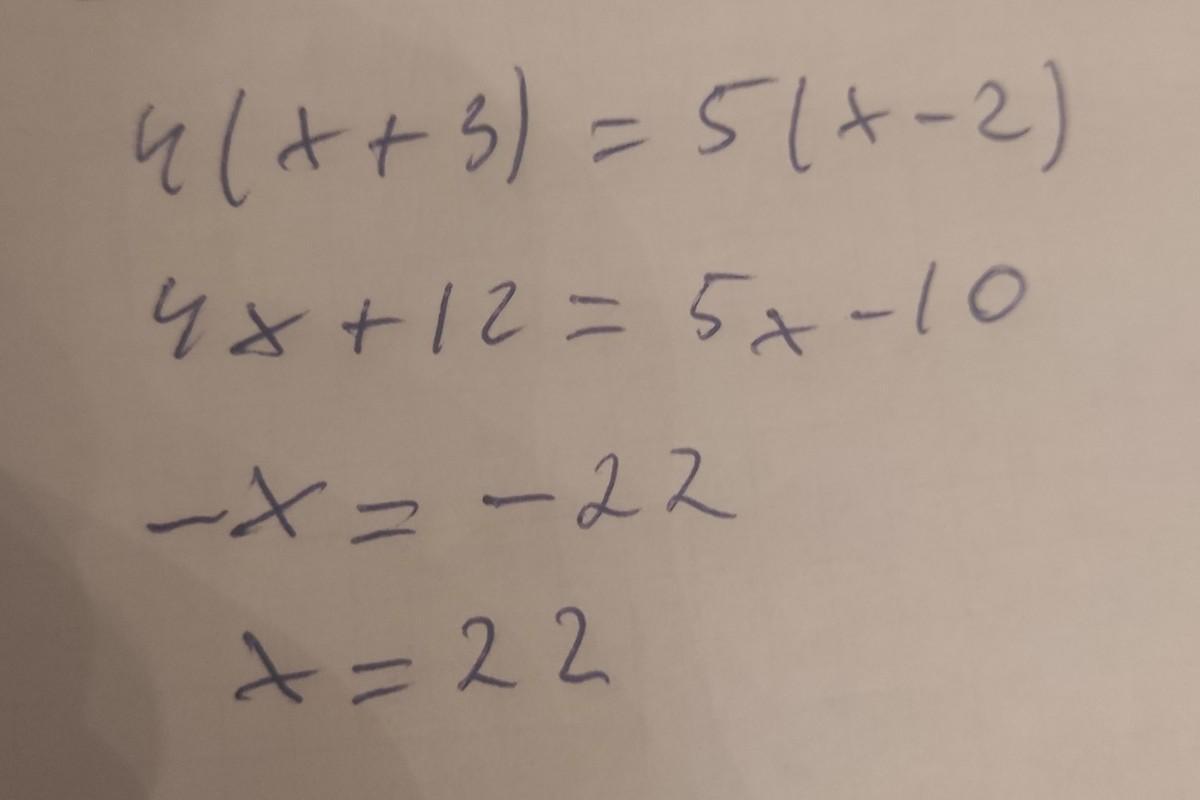 4(x+3) = 5(x-2)
4x+12 = 5x-10
-x = -22
x = 22